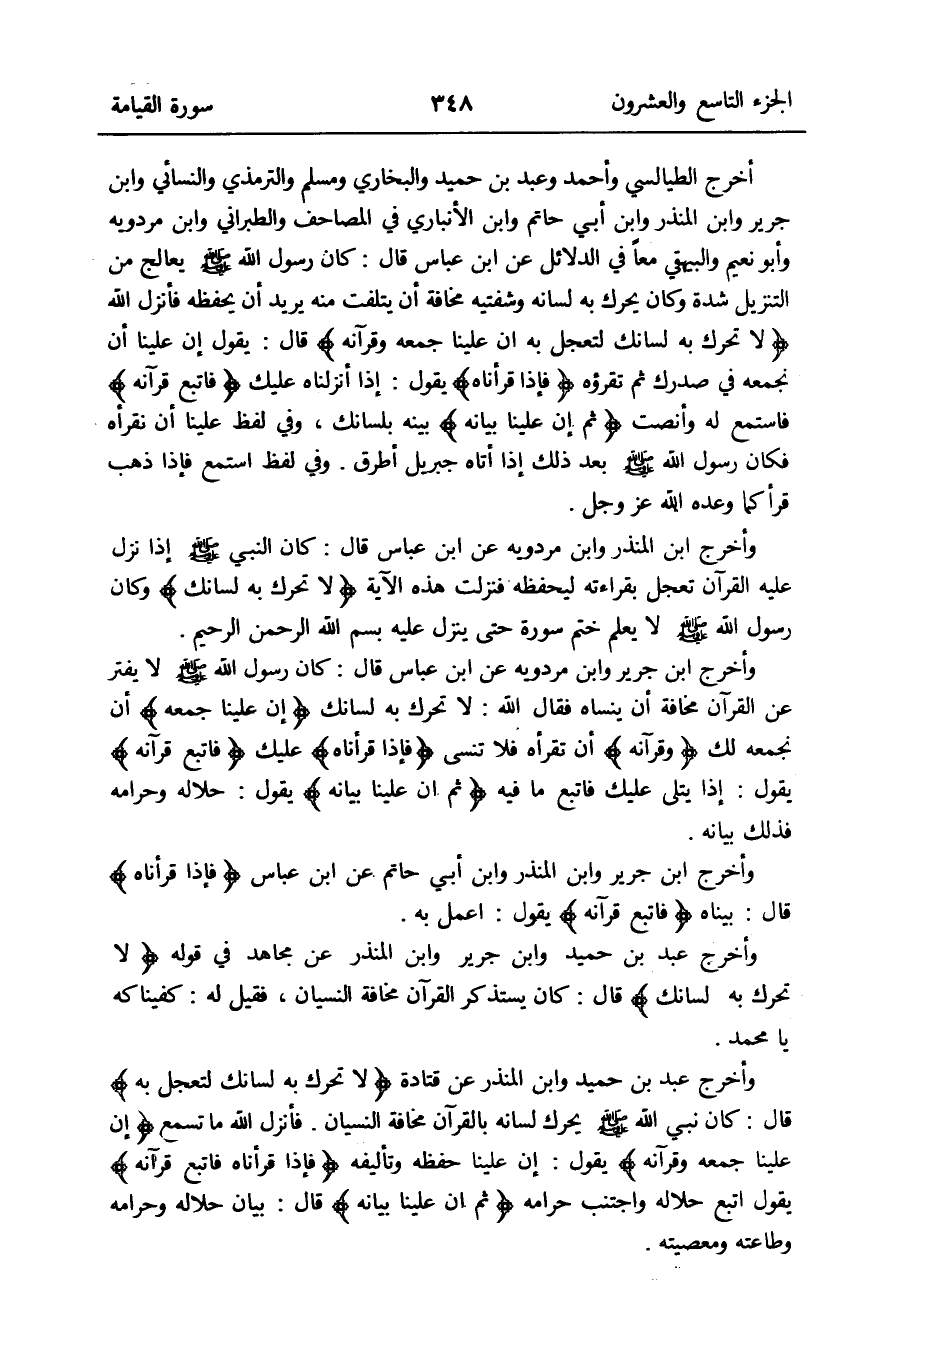 الجزء التاسع والعشرون ٣٤٨ سورة القيامة
أخرج الطيالسي وأحمد وعبد بن حميد والبخاري ومسلم والترمذي والنسائي وابن
جرير وابن المنذر وابن أبي حاتم وابن الأنباري في المصاحف والطبراني وابن مردويه
وأبو نعيم والبيهقي معاً في الدلائل عن ابن عباس قال : كان رسول الله ﷺ يعالج من
التنزيل شدة وكان يحرك به لسانه وشفتيه مخافة أن يتلفت منه يريد أن يحفظه فأنزل الله
﴿ لا تحرك به لسانك لتعجل به ان علينا جمعه وقرآنه ﴾ قال : يقول إن علينا أن
نجمعه في صدرك ثم تقرؤه ﴿ فإذا قرأناه ﴾ يقول : إذا أنزلناه عليك ﴿ فاتبع قرآنه ﴾
فاستمع له وأنصت ﴿ ثم إن علينا بيانه ﴾ بينه بلسانك ، وفي لفظ علينا أن نقرأه
فكان رسول الله ﷺ بعد ذلك إذا أتاه جبريل أطرق . وفي لفظ استمع فإذا ذهب
قرأ كما وعده الله عز وجل .
وأخرج ابن المنذر وابن مردويه عن ابن عباس قال : كان النبي ﷺ إذا نزل
عليه القرآن تعجل بقراءته ليحفظه فنزلت هذه الآية ﴿ لا تحرك به لسانك ﴾ وكان
رسول الله ﷺ لا يعلم ختم سورة حتى ينزل عليه بسم الله الرحمن الرحيم .
وأخرج ابن جرير وابن مردويه عن ابن عباس قال : كان رسول الله ﷺ لا يفتر
عن القرآن مخافة أن ينساه فقال الله : لا تحرك به لسانك ﴿ إن علينا جمعه ﴾ أن
نجمعه لك ﴿ وقرآنه ﴾ أن تقرأه فلا تنسى ﴿ فإذا قرأناه ﴾ عليك ﴿ فاتبع قرآنه ﴾
يقول : إذا يتلى عليك فاتبع ما فيه ﴿ ثم ان علينا بيانه ﴾ يقول : حلاله وحرامه
فذلك بيانه .
وأخرج ابن جرير وابن المنذر وابن أبي حاتم عن ابن عباس ﴿ فإذا قرأناه ﴾
قال : بيناه ﴿ فاتبع قرآنه ﴾ يقول : اعمل به .
وأخرج عبد بن حميد وابن جرير وابن المنذر عن مجاهد في قوله ﴿ لا
تحرك به لسانك ﴾ قال : كان يستذكر القرآن مخافة النسيان ، فقيل له : كفيناكه
يا محمد .
وأخرج عبد بن حميد وابن المنذر عن قتادة ﴿ لا تحرك به لسانك لتعجل به ﴾
قال : كان نبي الله ﷺ يحرك لسانه بالقرآن مخافة النسيان . فأنزل الله ما تسمع ﴿ إن
علينا جمعه وقرآنه ﴾ يقول : إن علينا حفظه وتأليفه ﴿ فإذا قرأناه فاتبع قرآنه ﴾
يقول اتبع حلاله واجتنب حرامه ﴿ ثم ان علينا بيانه ﴾ قال : بيان حلاله وحرامه
وطاعته ومعصيته .